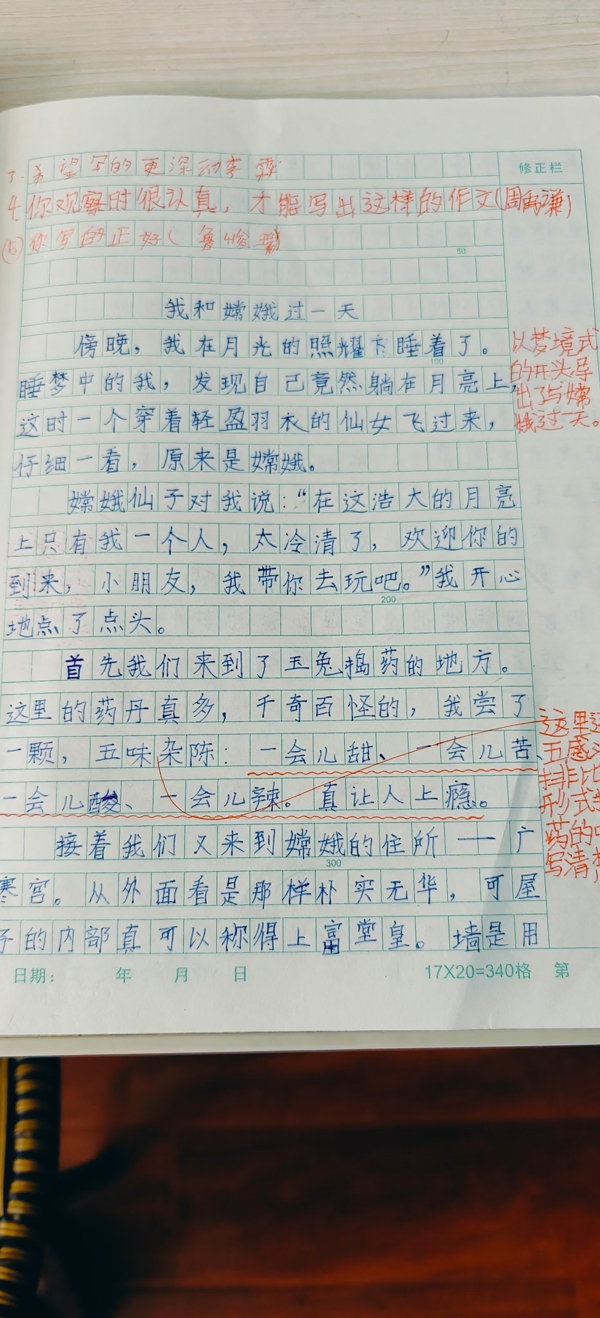 希望写的更深动
修正栏
4. 你观察时很认真，才能写出这样的作文(周
你写的正好(
50
我和嫦娥过一天
傍晚，我在月光的照耀下睡着了。
100
睡梦中的我，发现自己竟然躺在月亮上，
这时一个穿着轻盈羽衣的仙女飞过来，
仔细一看，原来是嫦娥。
以梦境式
的开头导
出了与嫦
娥过一天。
嫦娥仙子对我说：“在这浩大的月亮
上只有我一个人，太冷清了，欢迎你的
到来，小朋友，我带你去玩吧。”我开心
200
地点了点头。
首先我们来到了玉兔捣药的地方。
这里的药丹真多，千奇百怪的，我尝了
一颗，五味杂陈：一会儿甜、一会儿苦、
一会儿酸、一会儿辣。真让人上瘾。
这里运
五感
排非比
形式
药的
写清
接着我们又来到嫦娥的住所——广
300
寒宫。从外面看是那样朴实无华，可屋
子的内部真可以称得上富堂皇。墙是用
日期： 年 月 日 17X20=340格 第